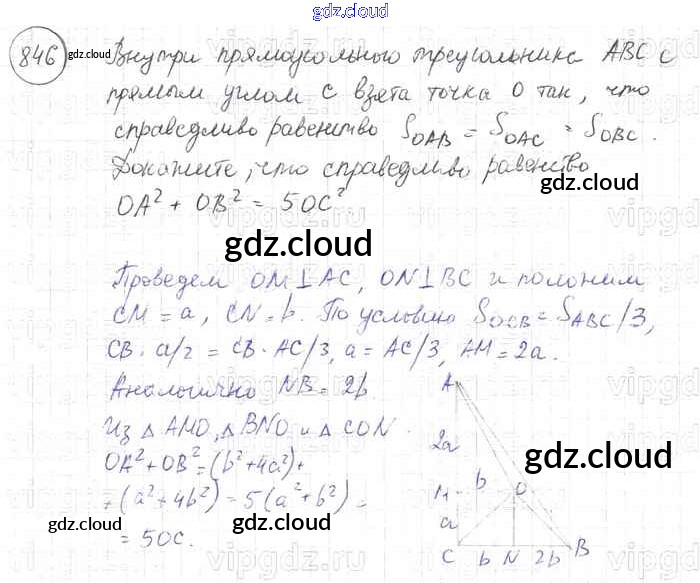 gdz.cloud
846 gdz.cloud Внутри прямоугольного треугольника ABC с
прямым углом C взята точка O так, что
справедливо равенство S_OAB = S_OAC = S_OBC.
Докажите, что справедливо равенство
OA² + OB² = 5OC²
gdz.cloud
gdz.cloud
Проведем OM⊥AC, ON⊥BC и положим
CM = a, CN = b. По условию S_OCB = S_ABC/3,
CB · a/2 = CB · AC/3, a = AC/3, AM = 2a.
Аналогично NB = 2b
Из △ AMO, △ BNO и △ CON.
OA² + OB² = (b² + 4a²) +
+ (a² + 4b²) = 5(a² + b²) =
= 5OC.
gdz.cloud
gdz.cloud
gdz.cloud
A
2a
M b O
a
C b N 2b B
vipgdz.ru